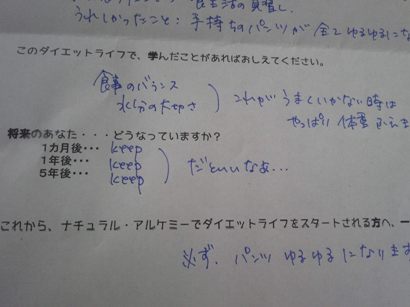 食生活の見直し、
うれしかったこと：手持ちのパンツが 全てゆるゆるにな
このダイエットライフで、学んだことがあればおしえてください。
食事のバランス
水分の大切さ
これがうまくいかない時は
やっぱり 体重
将来のあなた・・・どうなっていますか？
1カ月後・・・ keep
1年後・・・ keep
5年後・・・ keep
だといいなあ…
これから、ナチュラル・アルケミーでダイエットライフをスタートされる方へ、一
必ず、パンツ ゆるゆるになります